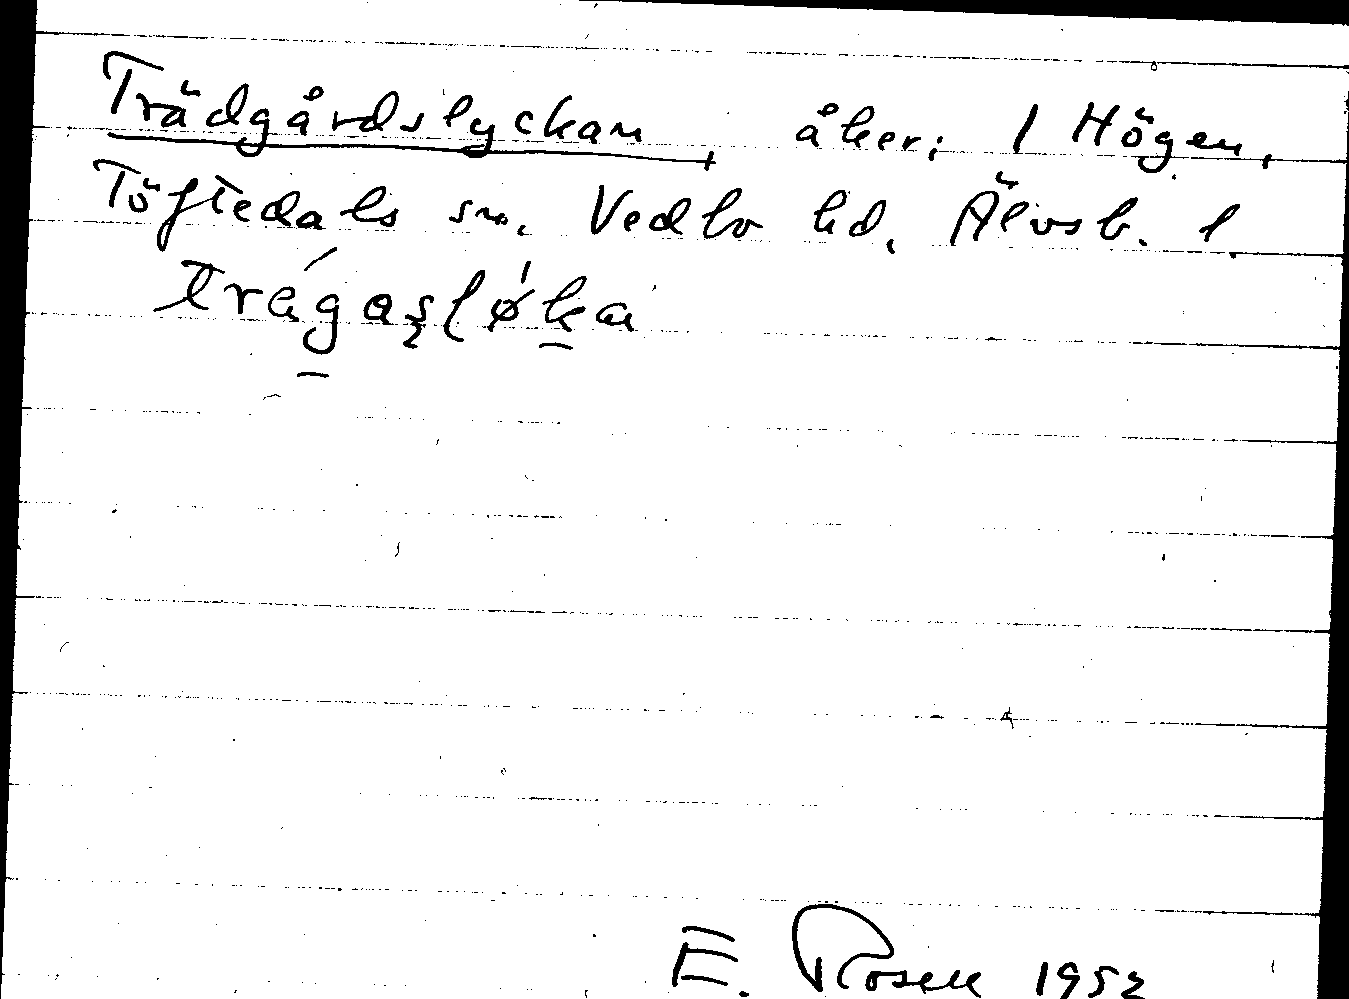 Trädgårdslyckan, åker; 1 Högen,
Töftedals sn, Vedbo hd, Älvsb. l.
trägaslø̀ka
E. Rosell 1952